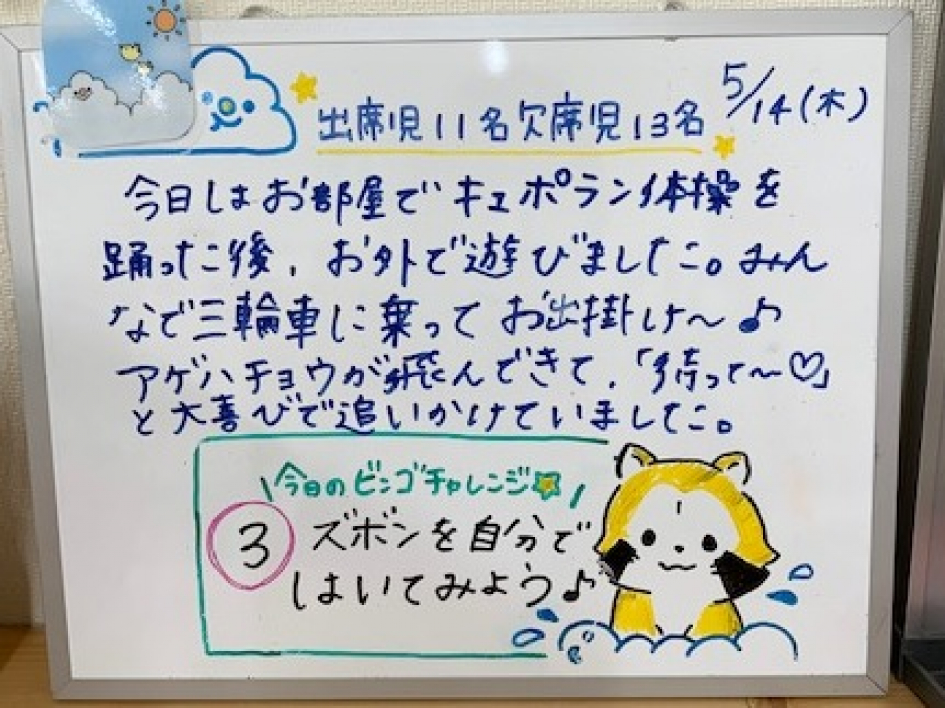 5/14(木)
出席児11名欠席児13名
今日はお部屋でキュポラン体操を
踊った後、お外で遊びました。みん
なで三輪車に乗ってお出掛け〜♪
アゲハチョウが飛んできて、「待って〜♡」
と大喜びで追いかけていました。
\今日のビンゴチャレンジ/
3 ズボンを自分で
はいてみよう♪